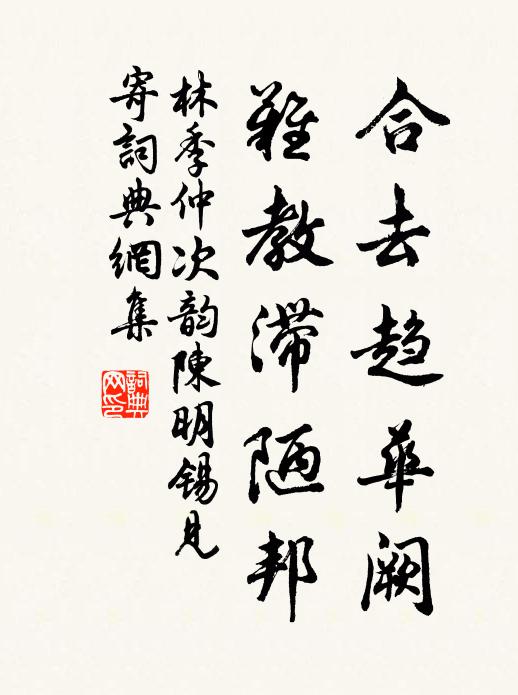 合去趋華阙
難教滞陋邦
林季仲次韵陳明锡見
寄詞典網集
詞典网印